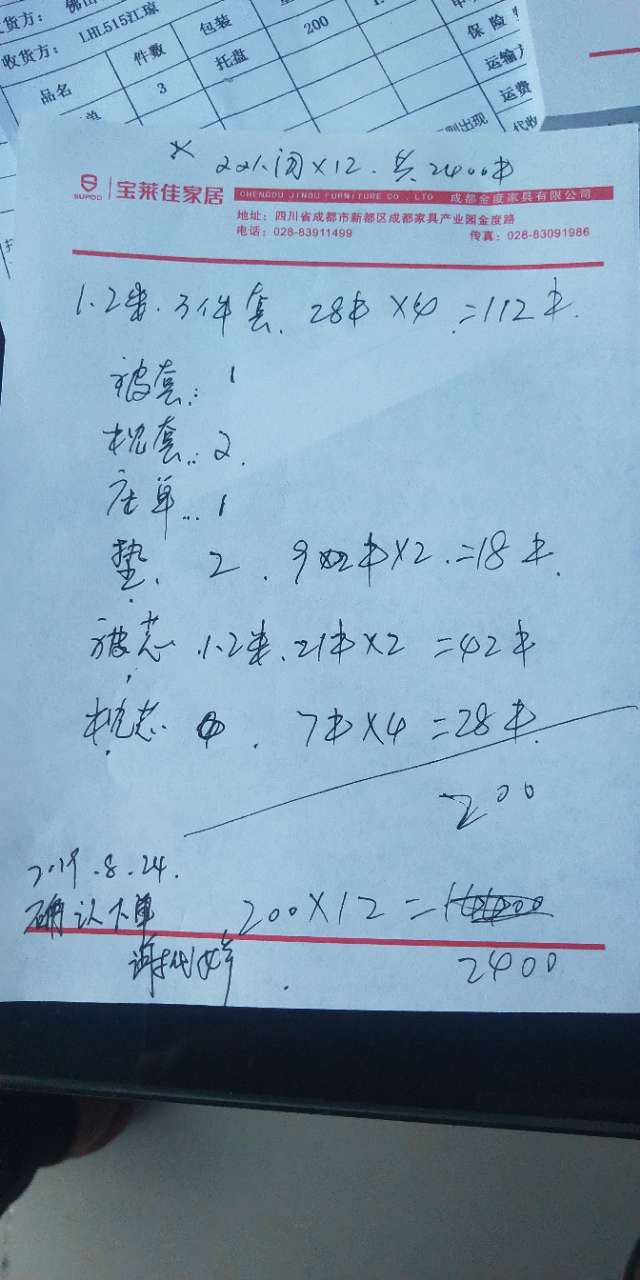 收货方: LHL515江琼
品名 件数 包装 200
3 托盘
保险
运输方
运费
代收
共2400
SUPOD 宝莱佳家居 CHENGDU JINDU FURNITURE CO., LTD 成都金度家具有限公司
地址: 四川省成都市新都区成都家具产业园金度路
电话: 028-83911499 传真: 028-83091986
1.2米.3件套. 28 ×4 =112
被套: 1
枕套.. 2
床单... 1
垫. 2. 9 ×2 =18
被芯 1.2米. 21 ×2 =42
枕芯 . 7 ×4 =28
200
2019.8.24.
确认下单 200×12=
2400